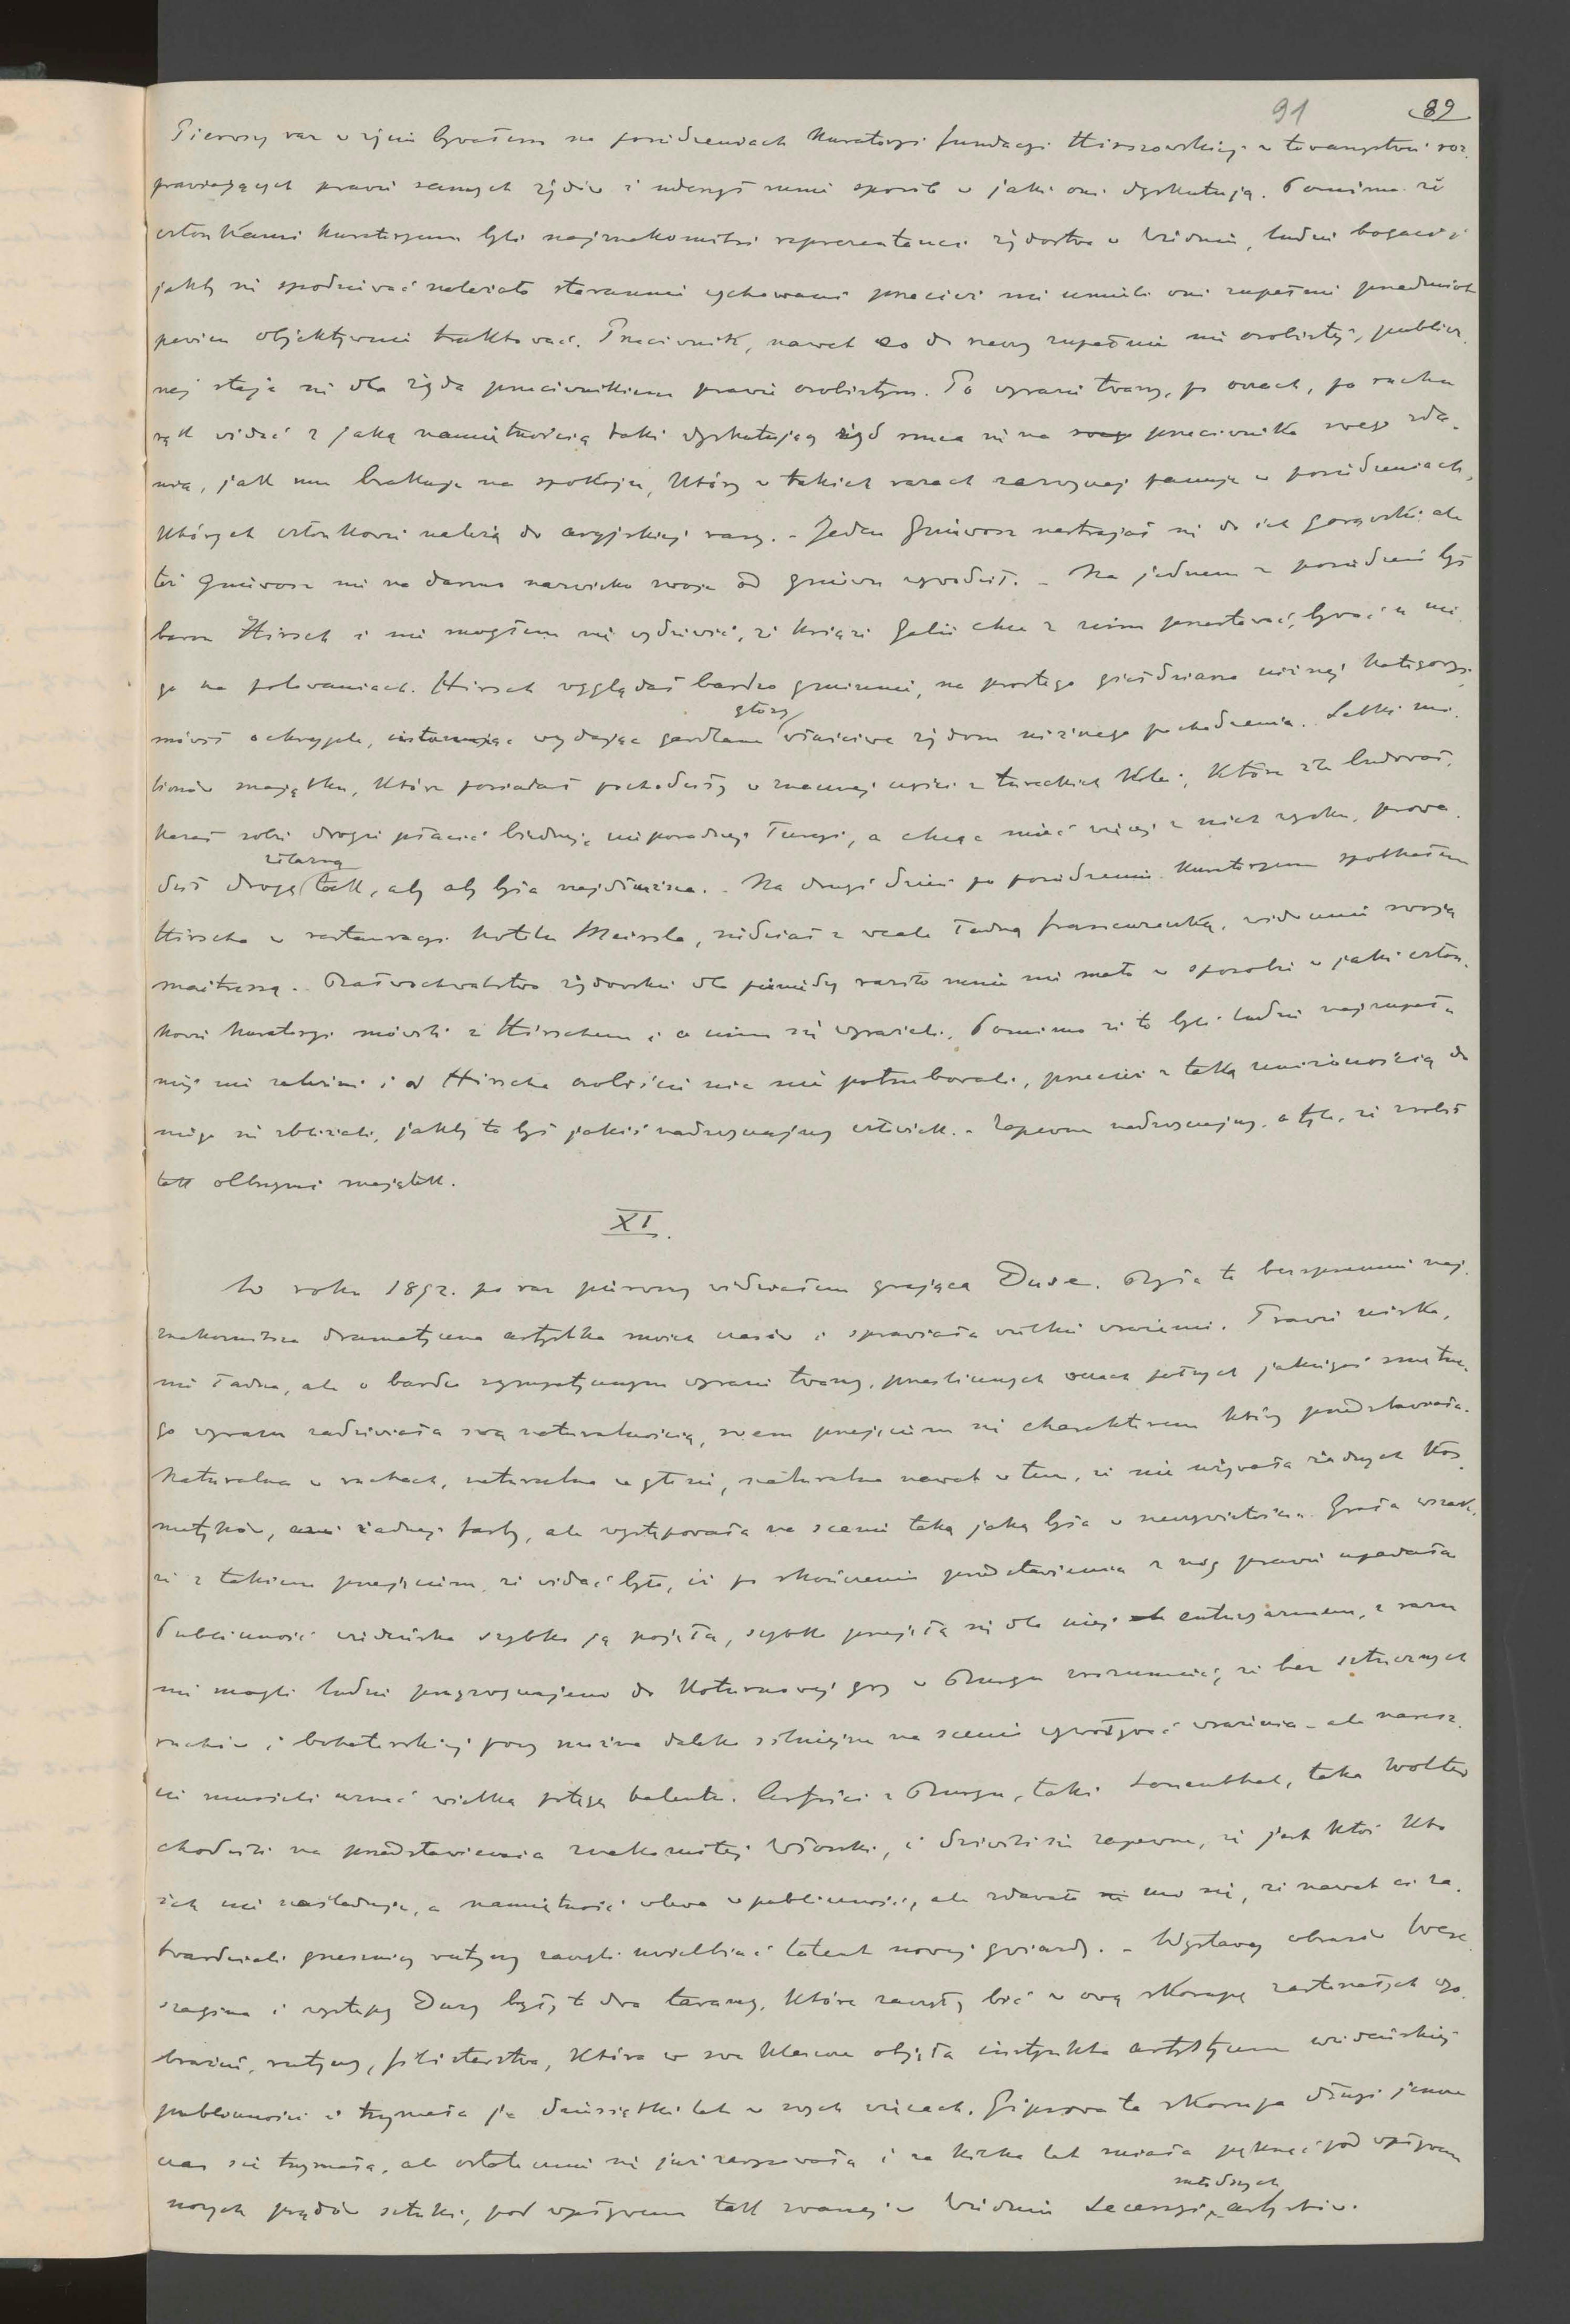 91 89
Pierwszy raz w życiu bywałem na posiedzeniach Kuratoryi fundacyi Hirszowskiej w towarzystwie roz-
prawiających prawie samych żydów i uderzył mnie sposób w jaki oni dyskutują. Pomimo że
członkami Kuratoryum byli najznakomitsi reprezentanci żydostwa w Wiedniu, ludzie bogaci i
jakby się spodziewać należało starannie wychowani przecież nie umieli oni zupełnie przedmiot
pewien objektywnie traktować. Przeciwnik, nawet co do rzeczy zupełnie nie osobistej, publicz-
nej staje się dla żyda przeciwnikiem prawie osobistym. Po wyrazie twarzy, po oczach, po ruchu
rąk widać z jaką namiętnością taki dyskutujący żyd rzuca się na swego przeciwnika swego zda-
nia, jak mu brakuje na spokoju, który w takich razach zazwyczaj panuje w posiedzeniach,
których członkowie należą do aryjskiej rasy. - Jeden Gniewosz nastrajał się do ich gorączki ale
też Gniewosz nie na darmo nazwisko swoje od gniewu wywodził. - Na jednem z posiedzeń był
baron Hirsch i nie mogłem się wydziwić, że książe Galii chce z nim przestawać, bywać u nie-
go na polowaniach. Hirsch wyglądał bardzo gminnie, na prostego giełdziarza niższej kategoryi,
mówił ochryple, wydając gardłem głosy właściwe żydom niższego pochodzenia. Setki mi-
lionów majątku, które posiadał pochodziły w znacznej części z tureckich kolei, które źle budował,
kazał sobie drogo płacić biednej, nieporadnej Turcyi, a chcąc mieć więcej z nich zysku, prowa-
dził drogę żelazną tak, aby była najdłuższa. - Na drugi dzień po posiedzeniu Kuratoryum spotkałem
Hirscha w restauracyi hotelu Meissla, siedział z wcale ładną francuzeczką, widocznie swoją
maitressą. Bałwochwalstwo żydowskie dla pieniędzy raziło mnie nie mało w sposobie w jaki człon-
kowie Kuratoryi mówili z Hirschem i o nim się wyrażali. Pomimo że to byli ludzie najzupeł-
niej nie zależni i od Hirscha osobiście nic nie potrzebowali, przecież z taką uniżonością do
niego się zbliżali, jakby to był jakiś nadzwyczajny człowiek. - Zapewne nadzwyczajny, o tyle, że zrobił
tak olbrzymi majątek.
XI.
W roku 1892. po raz pierwszy widziałem grającą Duse. Była to bezsprzecznie naj-
znakomitsza dramatyczna artystka moich czasów i sprawiała wielkie wrażenie. Prawie niska,
nie ładna, ale o bardzo sympatycznym wyrazie twarzy, prześlicznych oczach pełnych jakiegoś smętne-
go wyrazu zadziwiała swą naturalnością, swem przejęciem się charakterem który przedstawiała.
Naturalna w ruchach, naturalna w głosie, naturalna nawet w tem, że nie używała żadnych kos-
metyków, ani żadnej farby, ale występowała na scenie taką jaką była w rzeczywistości. Grała wszak-
że z takiem przejęciem, że widać było, iż po skończeniu przedstawienia z nóg prawie upadała.
Publiczność wiedeńska szybko ją pojęła, szybko przejęła się dla niej entuzyazmem, z razu
nie mogli ludzie przyzwyczajeni do koturnowej gry w Burgu zrozumieć, że bez sztucznych
ruchów i bohaterskiej pozy można daleko silniejsze na scenie wywoływać wrażenia - ale naresz-
cie musieli uznać wielką potęgę talentu. Artyści z Burgu, taki Sonenthal, taka Wolter
chodzili na przedstawienia znakomitej Włoszki, i dziwili się zapewne, że jest ktoś kto
ich nie naśladuje, a namiętność wlewa w publiczność, ale zdawało mi się, że nawet ci za-
twardziali grzesznicy rutyny zaczęli uwielbiać talent nowej gwiazdy. - Wystawy obrazów Were-
szagina i występy Duzy były to dwa tarany, które zaczęły bić w ową skorupę zastarzałych wyo-
brażeń, rutyny, filisterstwa, która w swe kleszcze objęła instynkta artystyczne wiedeńskiej
publiczności i trzymała ją dziesiątki lat w swych więzach. Gipsowa ta skorupa długi jeszcze
czas się trzymała, ale ostatecznie się już zarysowała i za kilka lat miała pęknąć pod wpływem
nowych prądów sztuki, pod wpływem tak zwanej w Wiedniu Secessyi młodszych artystów.